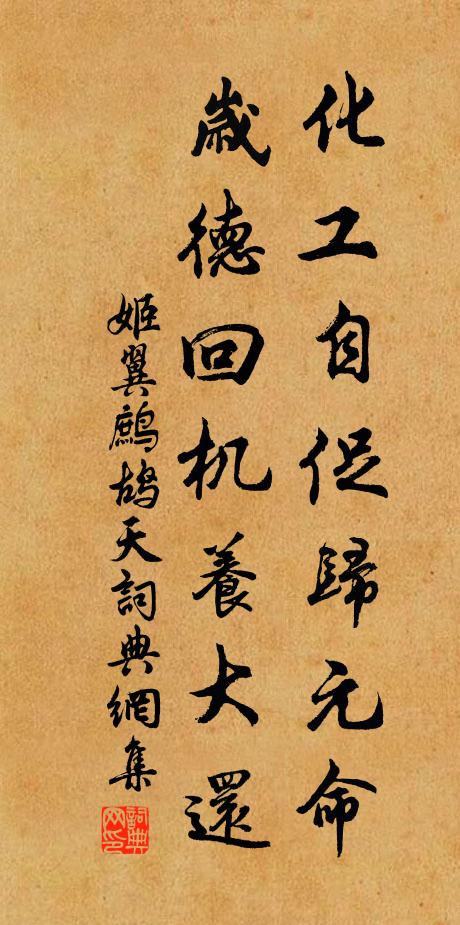 化工自促歸元命
歲德回机養大還
姬翼鷓鴣天詞典網集
詞典网印